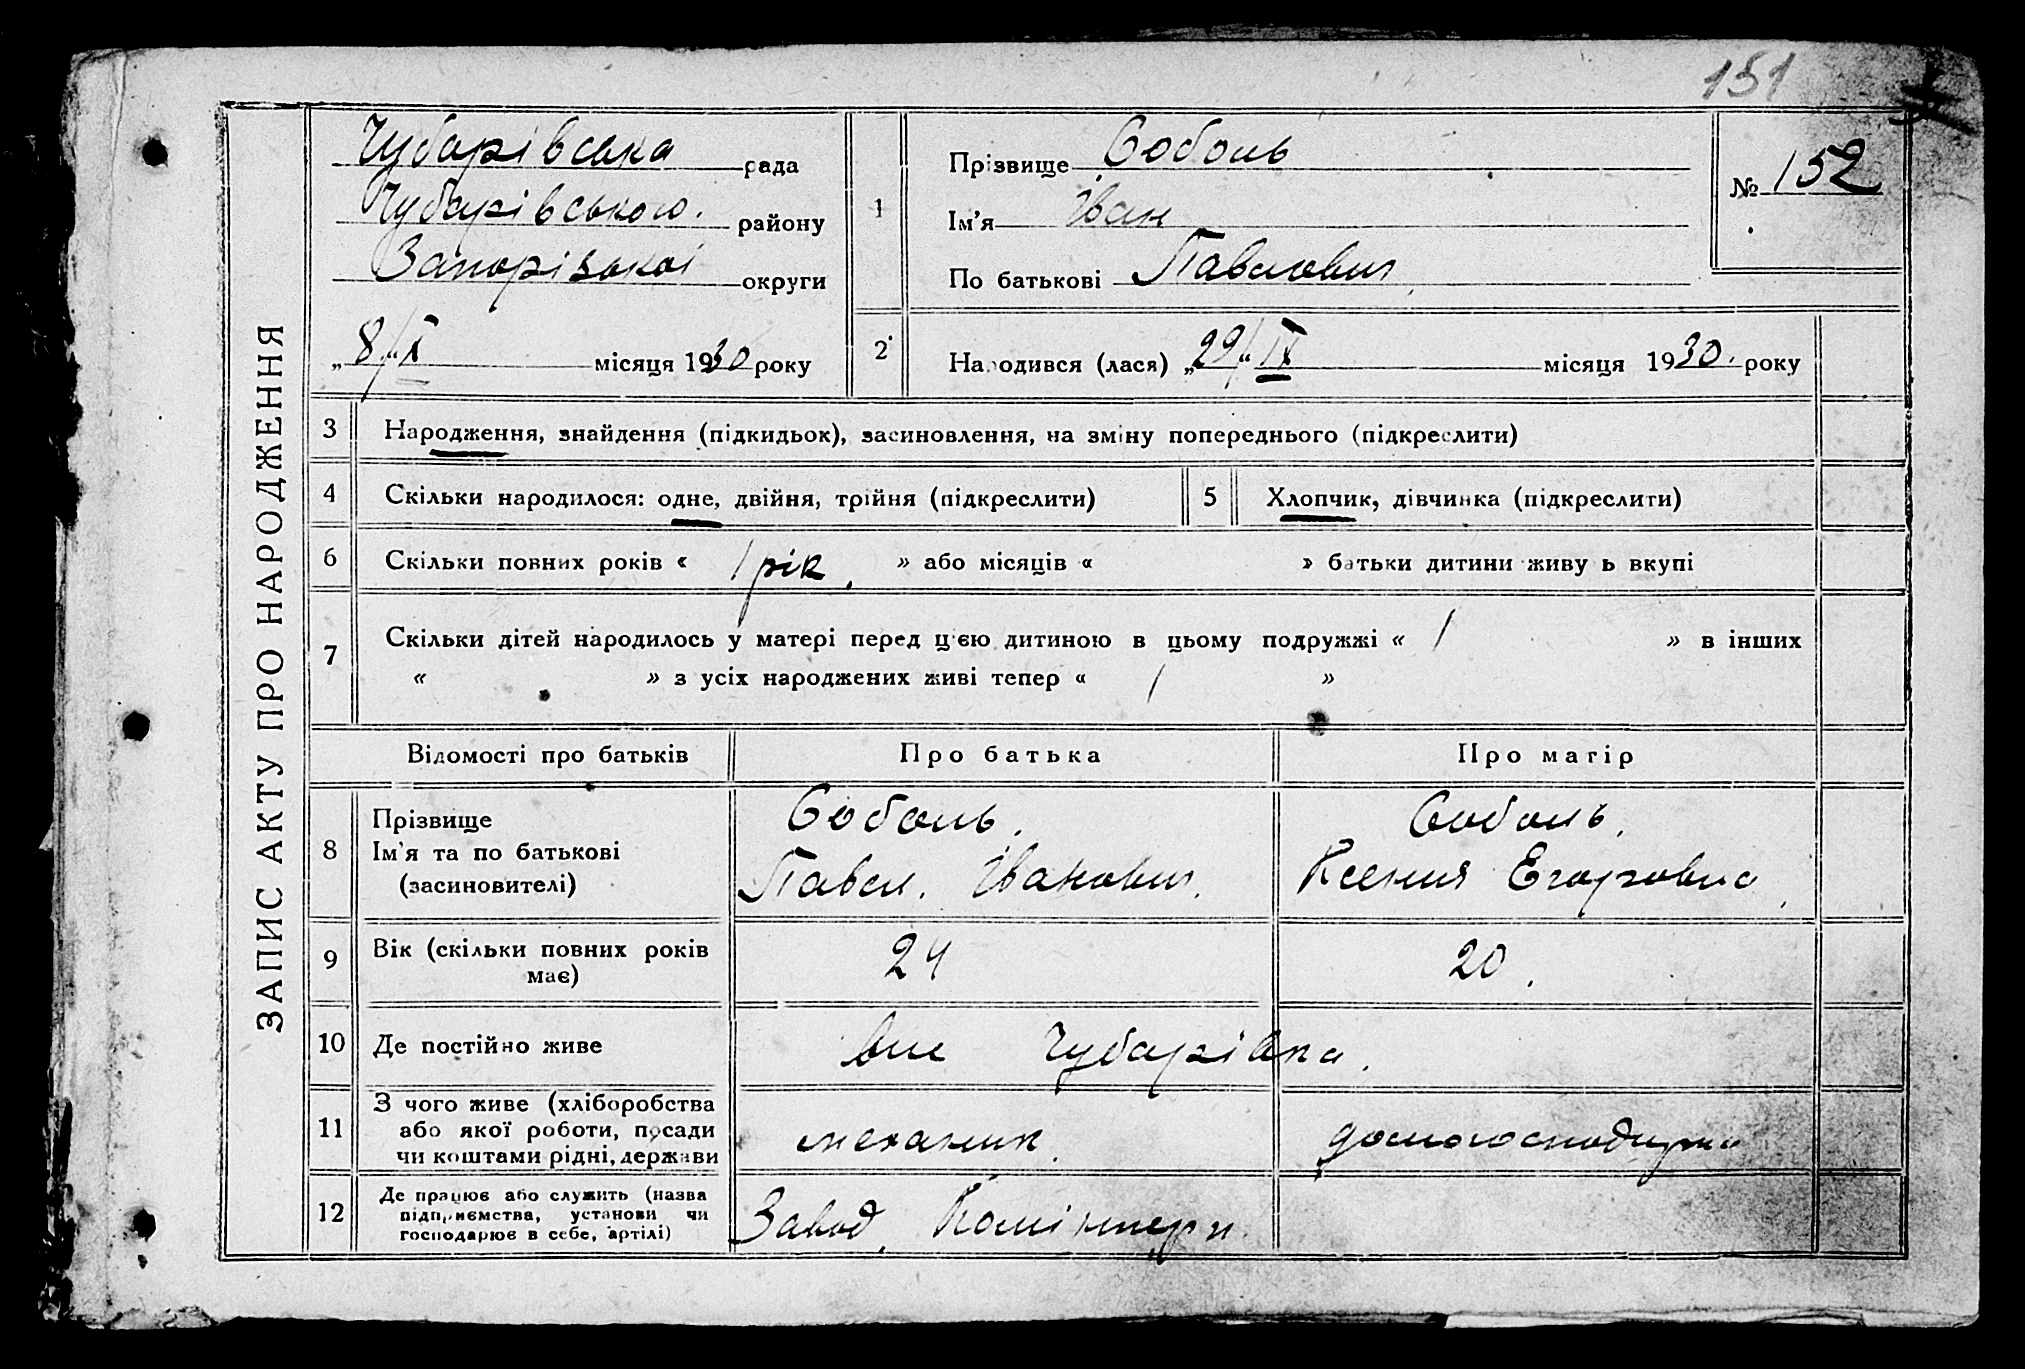 151
ЗАПИС АКТУ ПРО НАРОДЖЕННЯ
Чубарівська рада
Чубарівського району
Запорізької округи
„8/“ X місяця 1930 року
1
Прізвище Соболь
Ім'я Іван
По батькові Павлович
№ 152
2
Народився (лася) „29/“ IX місяця 1930 року
3 Народження, знайдення (підкидьок), засиновлення, на зміну попереднього (підкреслити)
4 Скільки народилося: одне, двійня, трійня (підкреслити) 5 Хлопчик, дівчинка (підкреслити)
6 Скільки повних років « 1 рік. » або місяців « » батьки дитини живуть вкупі
7 Скільки дітей народилось у матері перед цією дитиною в цьому подружжі « 1 » в інших
« » з усіх народжених живі тепер « 1 »
Відомості про батьків Про батька Про матір
8 Прізвище
Ім'я та по батькові
(засиновителі)
Соболь.
Павел. Іванович.
Соболь.
Ксения Егоровна
9 Вік (скільки повних років
має)
24 20.
10 Де постійно живе Чубарівка.
11 З чого живе (хліборобства
або якої роботи, посади
чи коштами рідні, держави
механик. домогосподарка
12 Де працює або служить (назва
підприємства, установи чи
господарює в себе, артілі)
Завод. Комінтерн.